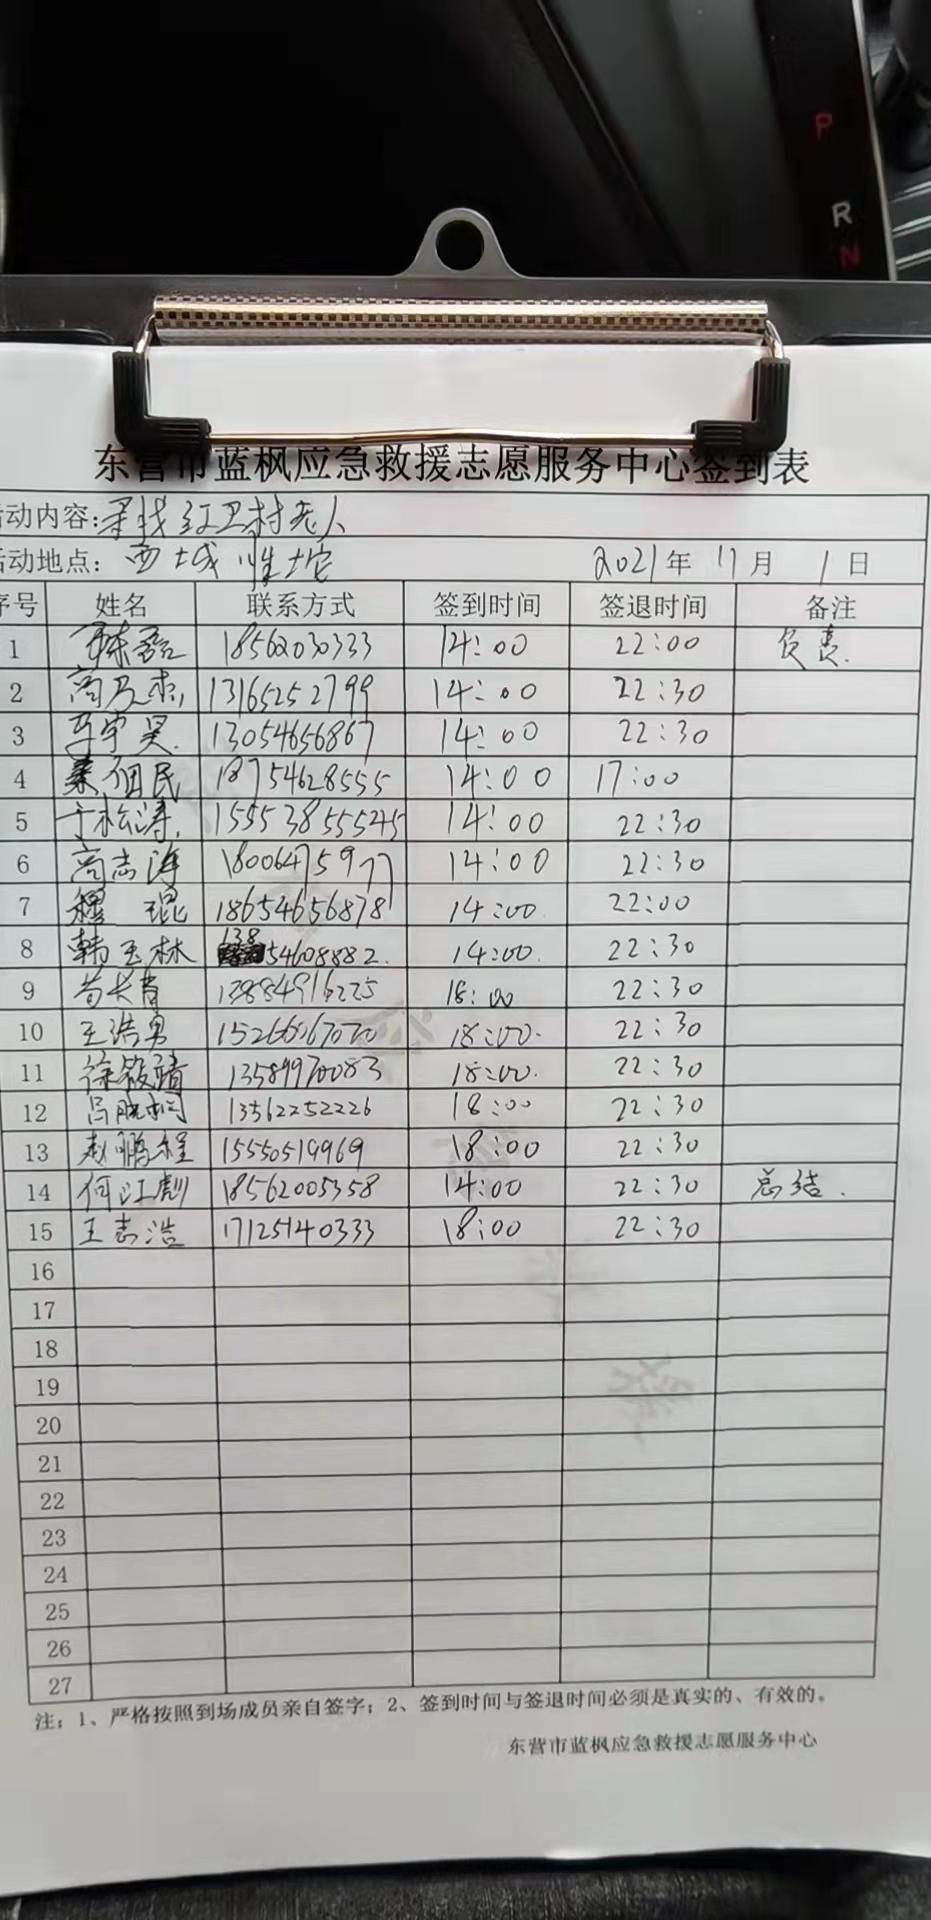 P
R
N
东营市蓝枫应急救援志愿服务中心签到表
活动内容:寻找红卫村老人
活动地点: 西城 2021年 11月 1日
序号 姓名 联系方式 签到时间 签退时间 备注
1 18562030333 14:00 22:00 负责.
2 13165252799 14:00 22:30
3 13054656867 14:00 22:30
4 18754628555 14:00 17:00
5 于松涛 14:00 22:30
6 高志涛 18006475977 14:00 22:30
7 程 琨 18654656878 14:00. 22:00
8 韩玉林 13854608882. 14:00. 22:30
9 18:00 22:30
10 王浩男 18:00. 22:30
11 13589970083 18:00. 22:30
12 13562252226 18:00 22:30
13 赵鹏程 15550519969 18:00 22:30
14 18562005358 14:00 22:30 总结.
15 王志浩 17125140333 18:00 22:30
16
17
18
19
20
21
22
23
24
25
26
27
注:1、严格按照到场成员亲自签字;2、签到时间与签退时间必须是真实的、有效的。
东营市蓝枫应急救援志愿服务中心